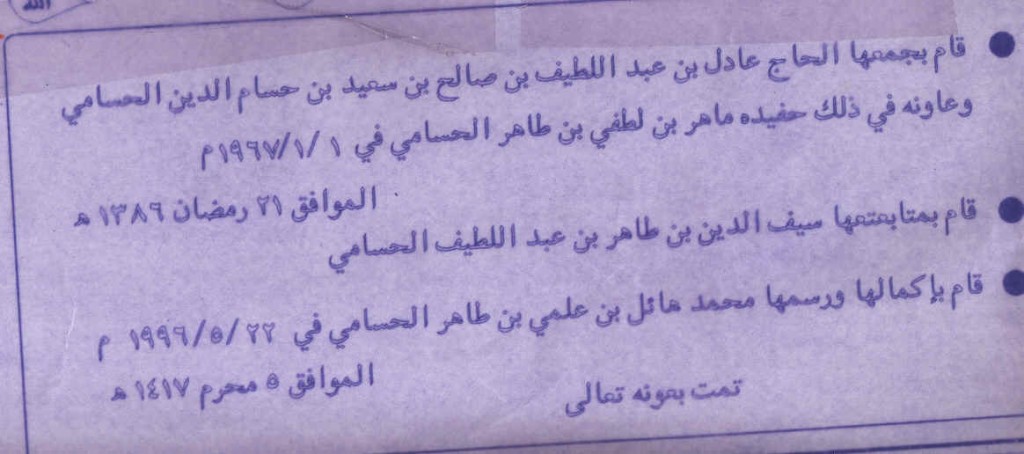 الله
● قام بجمعها الحاج عادل بن عبد اللطيف بن صالح بن سعيد بن حسام الدين الحسامي
وعاونه في ذلك حفيده ماهر بن لطفي بن طاهر الحسامي في ١ /١/ ١٩٦٧م
الموافق ٢١ رمضان ١٣٨٦ هـ
● قام بمتابعتها سيف الدين بن طاهر بن عبد اللطيف الحسامي
● قام بإكمالها ورسمها محمد هائل بن علمي بن طاهر الحسامي في ٢٢ /٥/ ١٩٩٦ م
الموافق ٥ محرم ١٤١٧ هـ
تمت بعونه تعالى